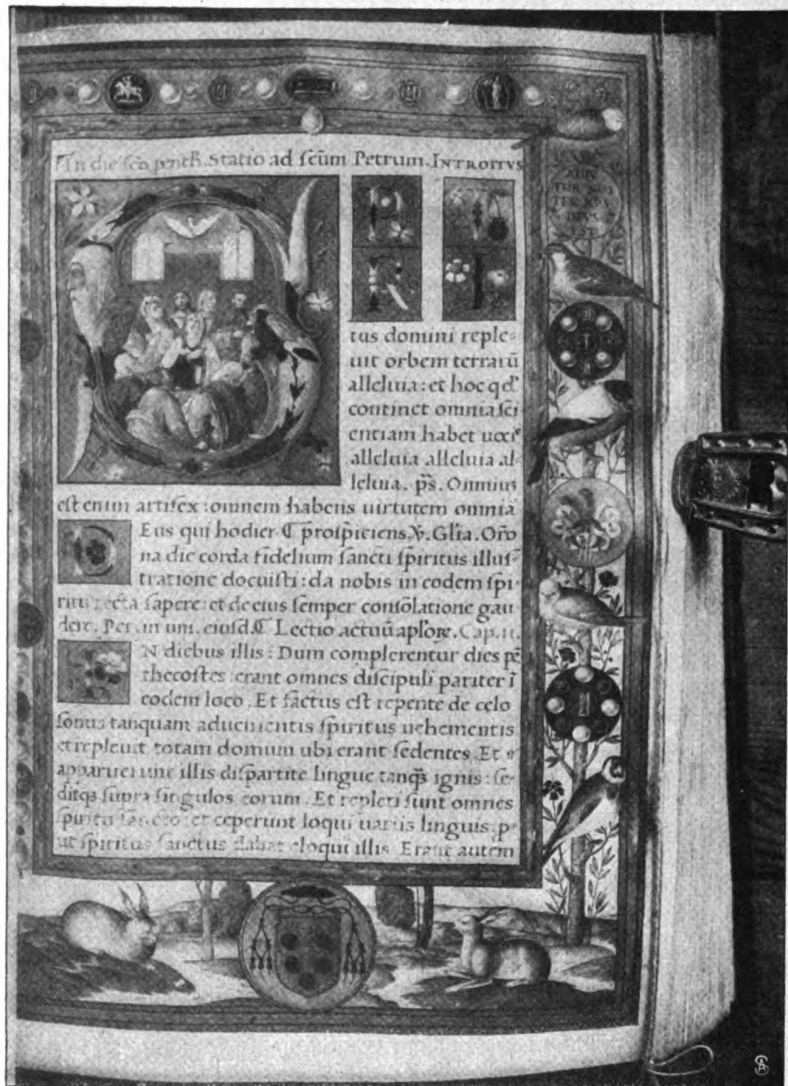 In die scō pentħ. Statio ad scūm Petrum. INTROITVS
S P I
R I
tus domini reple-
uit orbem terrarū
alleluia: et hoc qd̕
continet omnia sci-
entiam habet uocis
alleluia alleluia al-
leluia. p̄s. Omnium
est enim artifex: omnem habens uirtutem omnia
Eus qui hodier- ℭ prospiciens. ℣. Gl̄ia. Orō
na die corda fidelium sancti spiritus illus-
tratione docuisti: da nobis in eodem spi-
ritu recta sapere: et de eius semper consolatione gau
dere. Per in um. eiusd. ℭ Lectio actuū apl̄oꝝ. Cap. ii.
N diebus illis: Dum complerentur dies pē
thecostes: erant omnes discipuli pariter ī
eodem loco. Et factus est repente de celo
sonus tanquam aduenientis spiritus uehementis
et repleuit totam domum ubi erant sedentes. Et
apparuerunt illis dispartite lingue tanq̄ȝ ignis: se-
ditqȝ supra singulos eorum. Et repleti sunt omnes
spiritu sancto: et ceperunt loqui uariis linguis, p
ut spiritus sanctus dabat eloqui illis. Erant autem
ADIV
TOR NOS
TER
DEVS